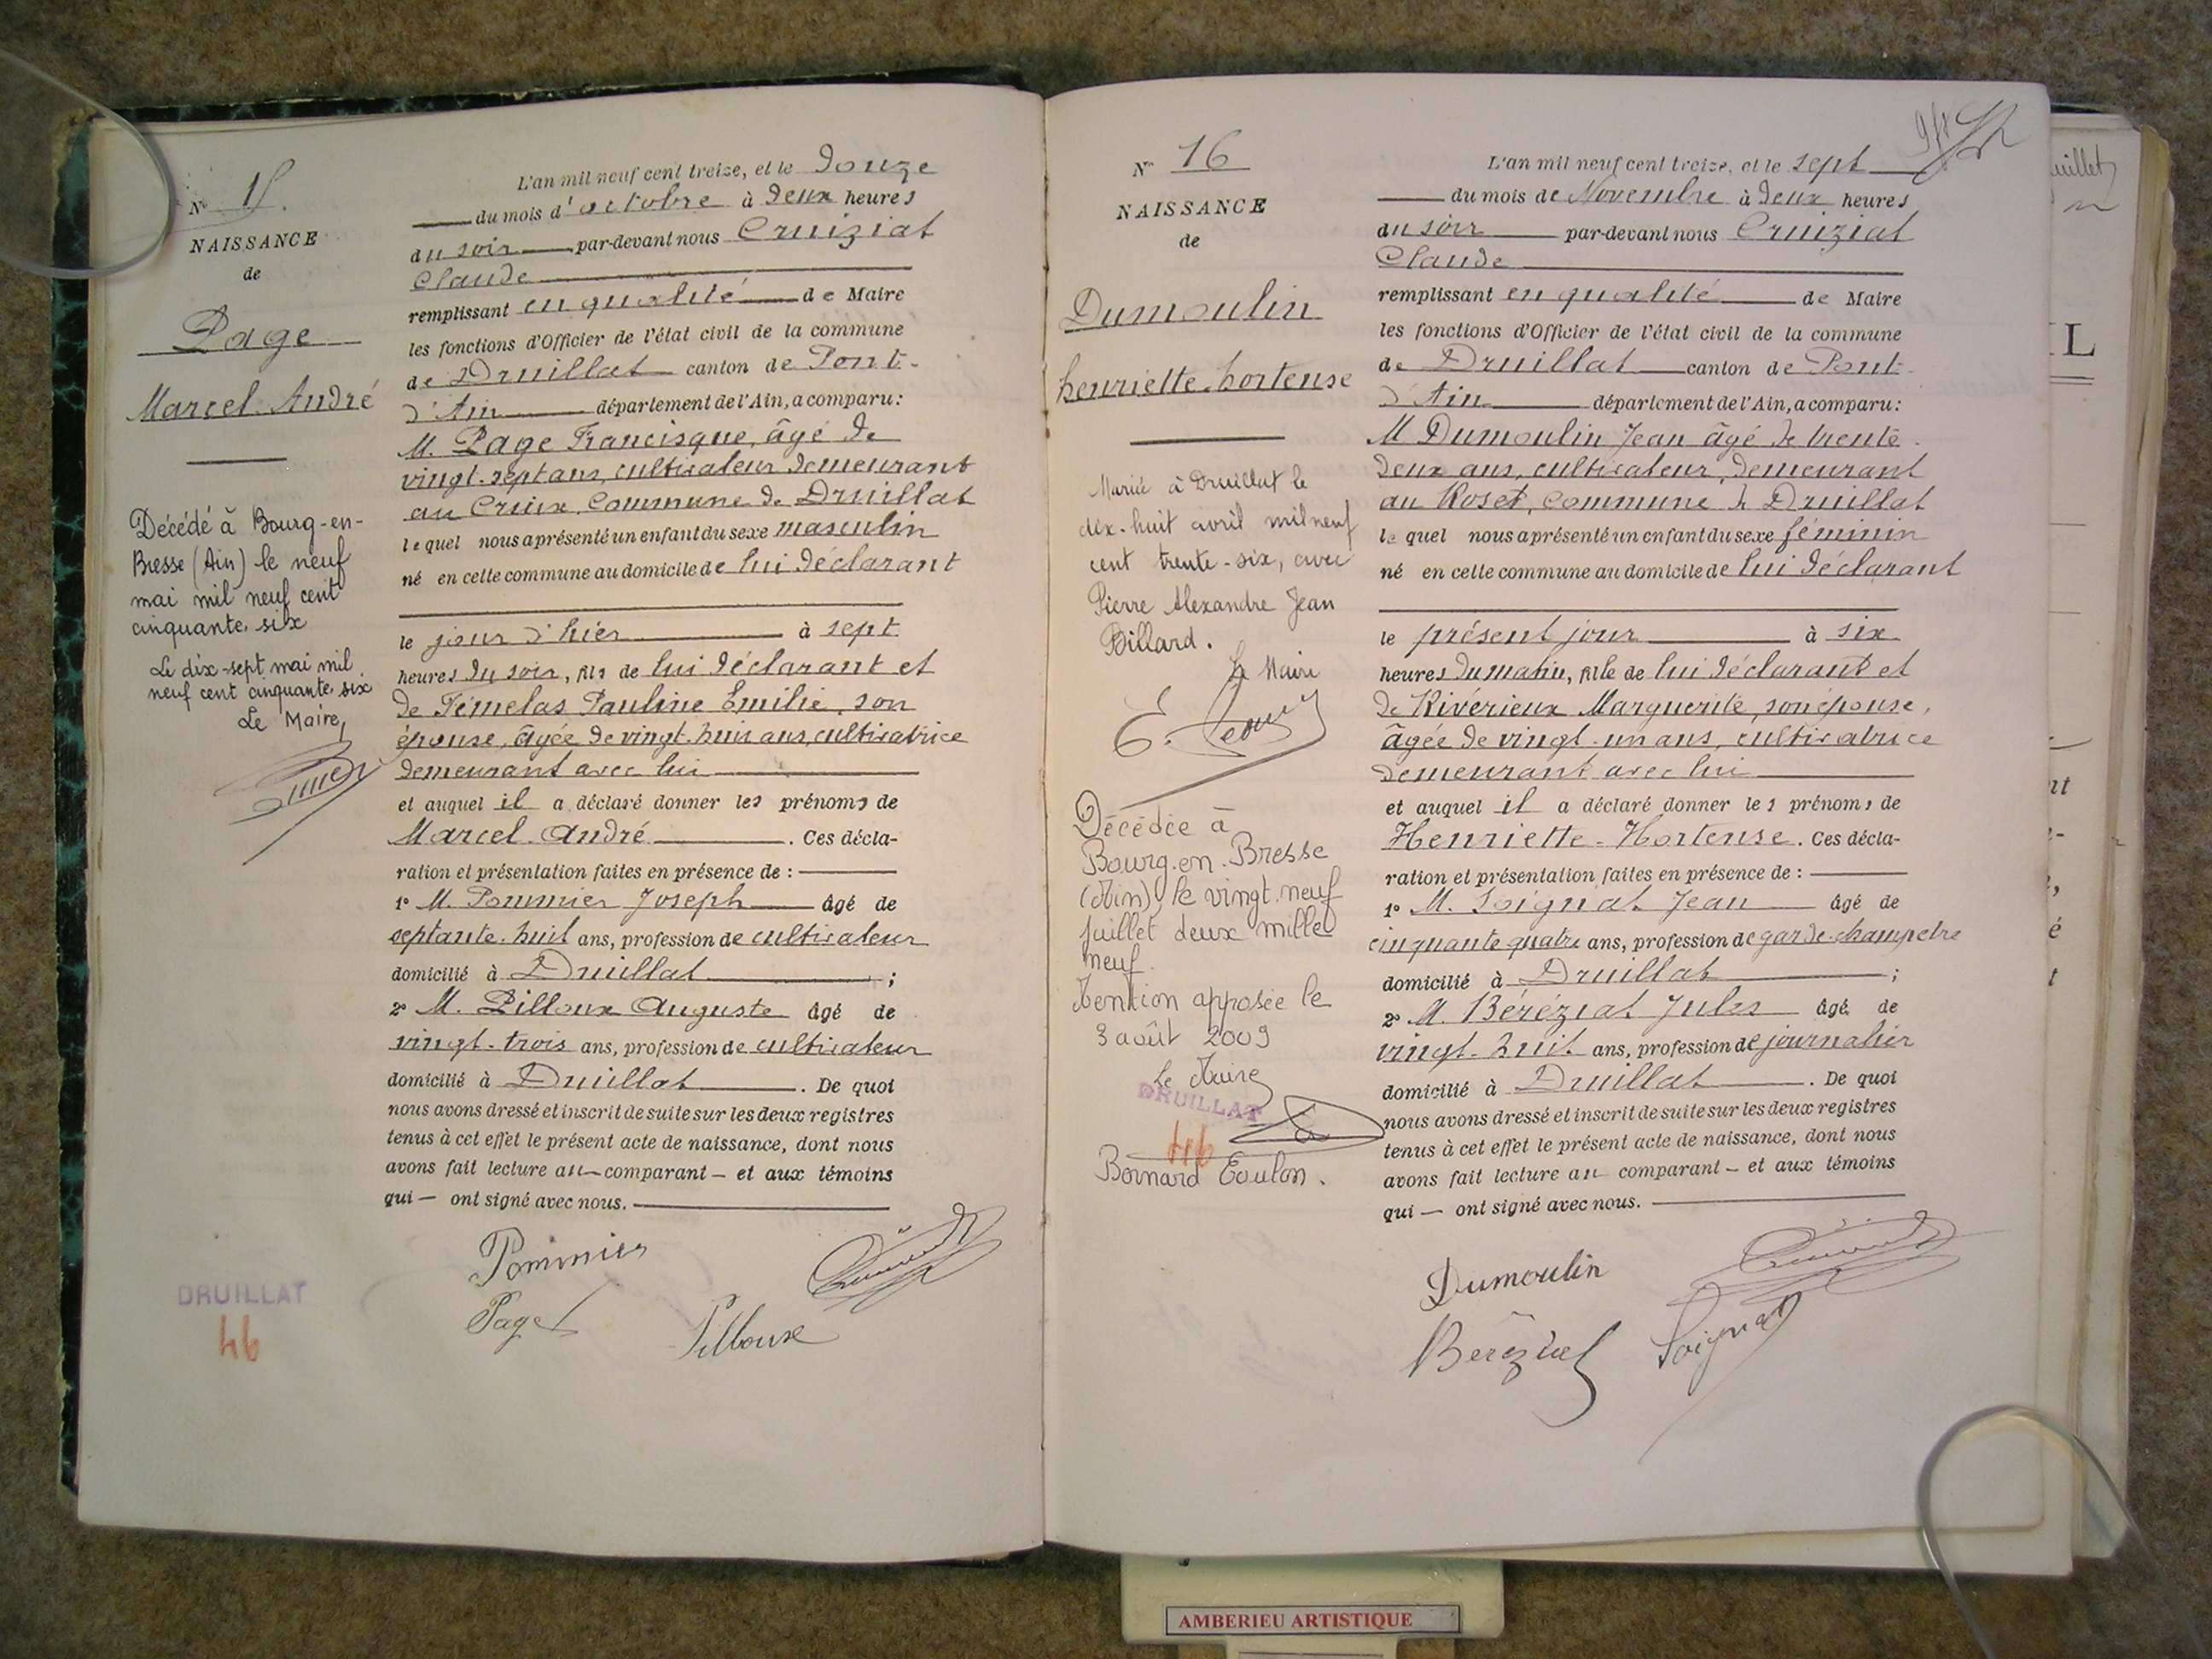 N° 15.
NAISSANCE
de
Page
Marcel André
Décédé à Bourg-en-
Bresse (Ain) le neuf
mai mil neuf cent
cinquante-six
Le dix-sept mai mil
neuf cent cinquante-six
Le Maire,
L'an mil neuf cent treize, et le douze
du mois d'octobre à deux heures
du soir par-devant nous Cruiziat
Claude
remplissant en qualité de Maire
les fonctions d'Officier de l'état civil de la commune
de Druillat canton de Pont-
d'Ain département de l'Ain, a comparu:
M. Page Francisque, âgé de
vingt-sept ans, cultivateur demeurant
au Cruix, Commune de Druillat
lequel nous a présenté un enfant du sexe masculin
né en cette commune au domicile de lui déclarant
le jour d'hier à sept
heures du soir, fils de lui déclarant et
de Fémelas Pauline Emilie, son
épouse, âgée de vingt-huit ans, cultivatrice
demeurant avec lui
et auquel il a déclaré donner les prénoms de
Marcel-André. Ces décla-
ration et présentation faites en présence de :
1° M. Pommier Joseph âgé de
septante-huit ans, profession de cultivateur
domicilié à Druillat ;
2° M. Pilloux Auguste âgé de
vingt-trois ans, profession de cultivateur
domicilié à Druillat. De quoi
nous avons dressé et inscrit de suite sur les deux registres
tenus à cet effet le présent acte de naissance, dont nous
avons fait lecture au comparant — et aux témoins
qui — ont signé avec nous.
Pommier
Page
Pilloux
DRUILLAT
46
N° 16
NAISSANCE
de
Dumoulin
henriette-hortense
Mariée à Druillat le
dix-huit avril mil neuf
cent trente-six, avec
Pierre Alexandre Jean
Billard.
Le Maire
Décédée à
Bourg-en-Bresse
(Ain) le vingt-neuf
juillet deux mille
neuf.
Mention apposée le
3 août 2009
Le Maire
DRUILLAT
46
Bernard Toulon.
L'an mil neuf cent treize, et le sept
du mois de Novembre à deux heures
du soir par-devant nous Cruiziat
Claude
remplissant en qualité de Maire
les fonctions d'Officier de l'état civil de la commune
de Druillat canton de Pont-
d'Ain département de l'Ain, a comparu:
M Dumoulin Jean âgé de trente-
deux ans, cultivateur, demeurant
au Roset, commune de Druillat
lequel nous a présenté un enfant du sexe féminin
né en cette commune au domicile de lui déclarant
le présent jour à six
heures du matin, fille de lui déclarant et
de Rivérieux Marguerite, son épouse,
âgée de vingt-un ans, cultivatrice
demeurant avec lui
et auquel il a déclaré donner les prénoms de
Henriette-Hortense. Ces décla-
ration et présentation faites en présence de :
1° M. Soignat Jean âgé de
cinquante quatre ans, profession de garde-champetre
domicilié à Druillat ;
2° M. Béréziat Jules âgé de
vingt-huit ans, profession de journalier
domicilié à Druillat. De quoi
nous avons dressé et inscrit de suite sur les deux registres
tenus à cet effet le présent acte de naissance, dont nous
avons fait lecture au comparant — et aux témoins
qui — ont signé avec nous.
Dumoulin
Béréziat
Soignat
AMBERIEU ARTISTIQUE